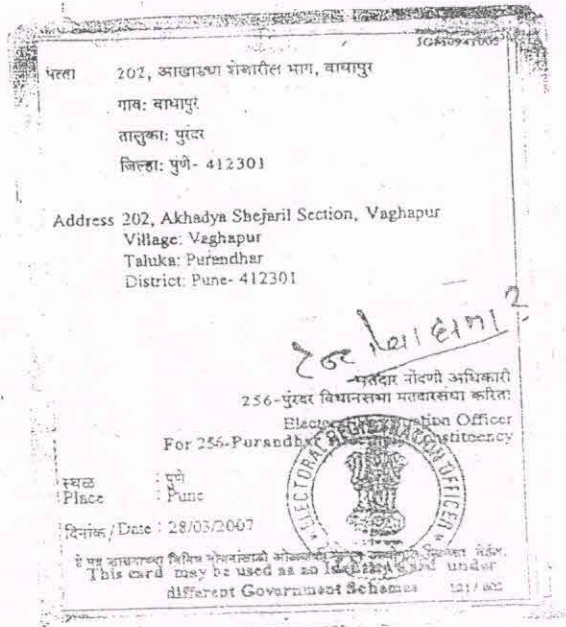 पत्ता 202, आखाड्या शेजारील भाग, वाघापुर
गाव: वाघापुर
तालुका: पुरंदर
जिल्हा: पुणे- 412301
Address 202, Akhadya Shejaril Section, Vaghapur
Village: Vaghapur
Taluka: Purandhar
District: Pune- 412301
मतदार नोंदणी अधिकारी
256-पुरंदर विधानसभा मतदारसंघा करिता
Electoral Registration Officer
For 256-Purandhar Constituency
ELECTORAL REGISTRATION OFFICER
स्थळ : पुणे
Place : Pune
दिनांक / Date : 28/03/2007
This card may be used as an Identity Card under
different Government Schemes